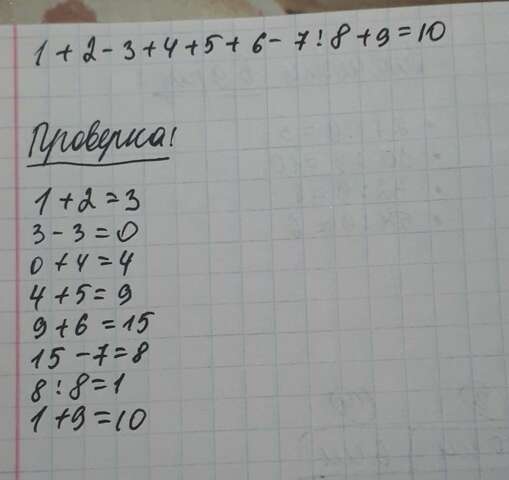 1 + 2 - 3 + 4 + 5 + 6 - 7 : 8 + 9 = 10
Проверка!
1 + 2 = 3
3 - 3 = 0
0 + 4 = 4
4 + 5 = 9
9 + 6 = 15
15 - 7 = 8
8 : 8 = 1
1 + 9 = 10